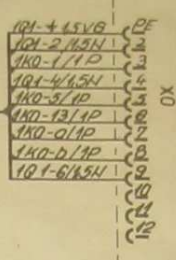 1Q1-4 1.5VG PE
1Q1-2/1.5H 2
1K0-1/1P 3
1Q1-4/1.5H 4
1K0-5/1P 5
1K0-13/1P 6
1K0-a/1P 7
1K0-b/1P 8
1Q1-6/1.5H 9
10
11
12
OX